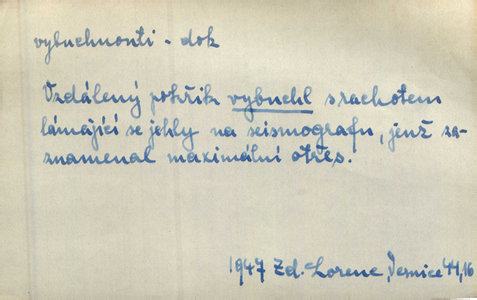 vybuchnouti - dok
Vzdálený pokřik vybuchl s rachotem
lámající se jehly na seismografu, jenž za-
znamenal maximální otřes.
1947 Zd. Lorenc, Vesnice 44,16